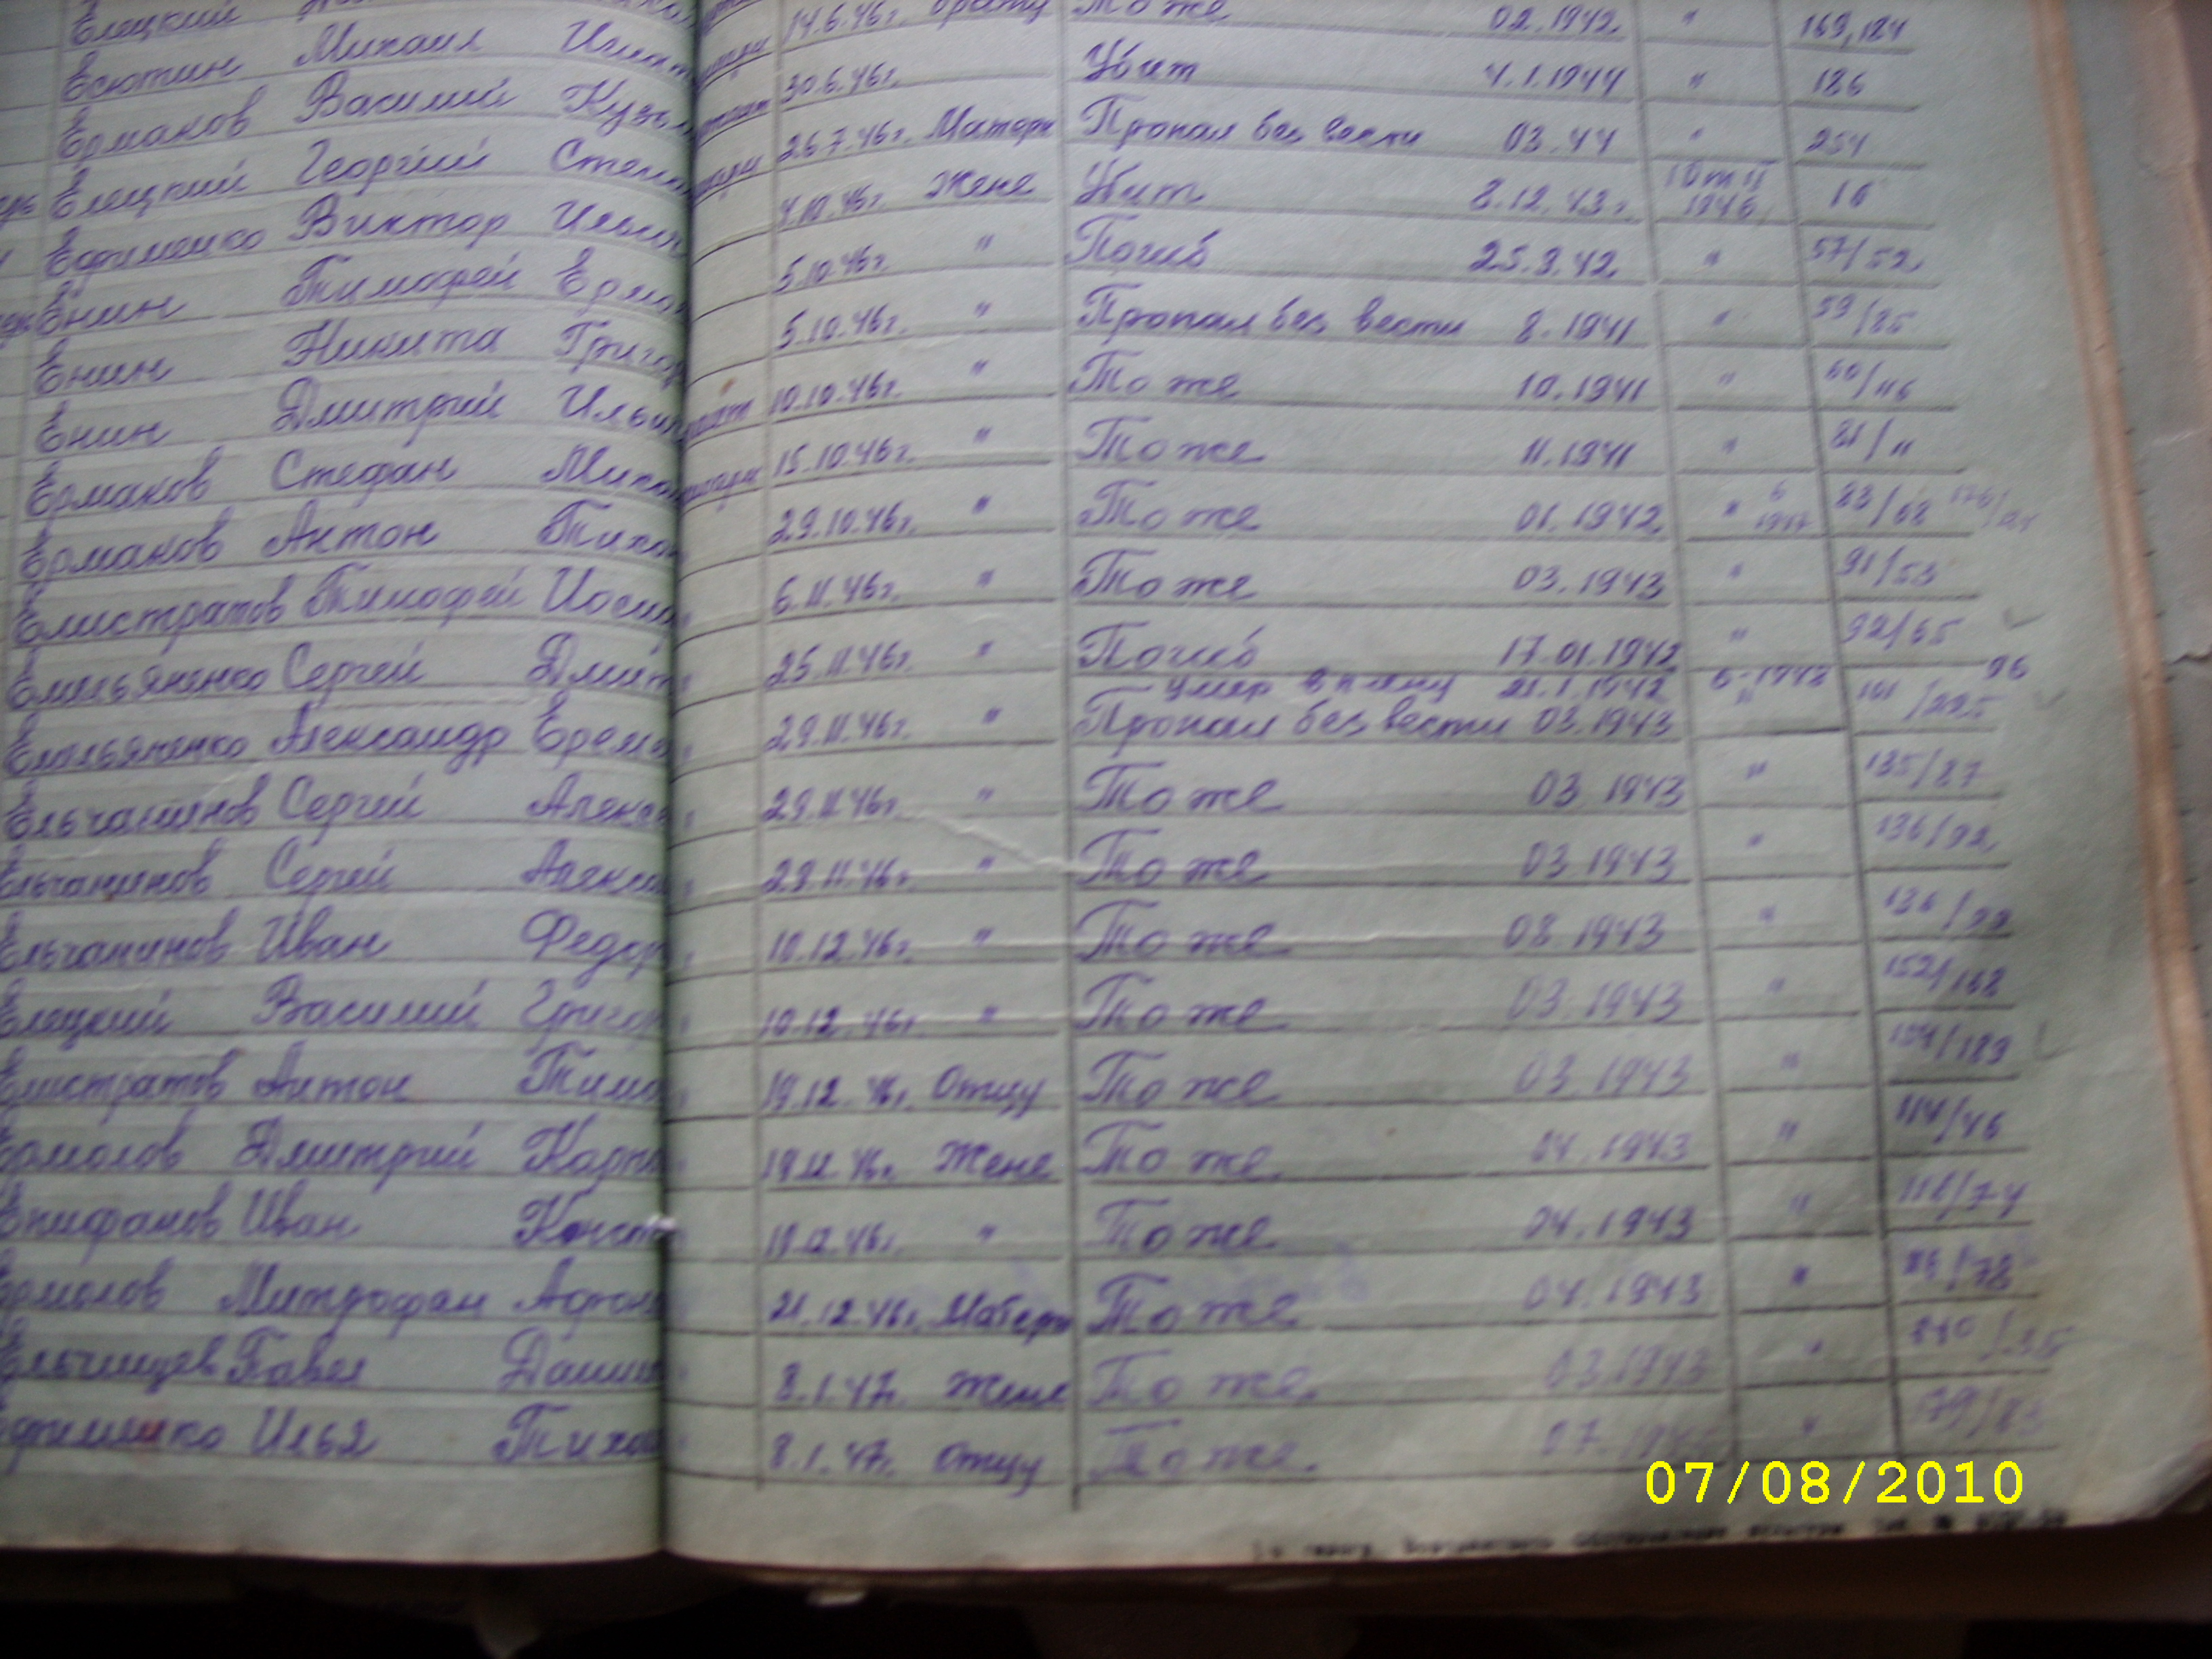 Елецкий 14.6.46г. брату То же 02.1942. " 169,184
Есютин Михаил Игнат 30.6.46г. Убит 4.1.1944 " 186
Ермаков Василий Кузьм 26.7.46г. Матери Пропал без вести 03.44 " 254
Елецкий Георгий Степа 4.10.46г. Жене Убит 8.12.43г. 10 т II 1946, 16
Ефименко Виктор Ильич 5.10.46г. " Погиб 25.8.42. " 57/52
Енин Тимофей Ермо 5.10.46г. " Пропал без вести 8.1941 " 59/85
Енин Никита Григор 10.10.46г. " То же 10.1941 " 60/116
Енин Дмитрий Ильич 15.10.46г. " То же 11.1941 " 81/11
Ермаков Стефан Миха 29.10.46г. " То же 01.1942. " 6 1947 83/68
Ермаков Антон Тихон 6.11.46г. " То же 03.1943 " 91/53
Елистратов Тимофей Иоси 25.11.46г. " Погиб 17.01.1942 " 92/65
умер в плену 21.1.1942 96
Емельяненко Сергей Дмит 29.11.46г. " Пропал без вести 03.1943 " 101/225
Емельяненко Александр Ерема 29.11.46г. " То же 03.1943 " 135/87
Ельчанинов Сергей Алекса 29.11.46г. " То же 03.1943 " 136/92
Ельчанинов Сергей Алекса 10.12.46г. " То же 08.1943 "
Ельчанинов Иван Федор 10.12.46г. " То же 03.1943 " 152/168
Елецкий Василий Григор 19.12.46г. Отцу То же 03.1943 "
Елистратов Антон Тимо 19.12.46г. Жене То же 04.1943 " 114/46
Ермолов Дмитрий Карпо 19.12.46г. " То же 04.1943 "
Епифанов Иван Конста 21.12.46г. Матери То же 04.1943 "
Ермолов Митрофан Афона 8.1.47г. Жене То же 03.1943 "
Ельчищев Павел Данил 8.1.47г. Отцу То же "
Ефименко Илья Тихон
07/08/2010